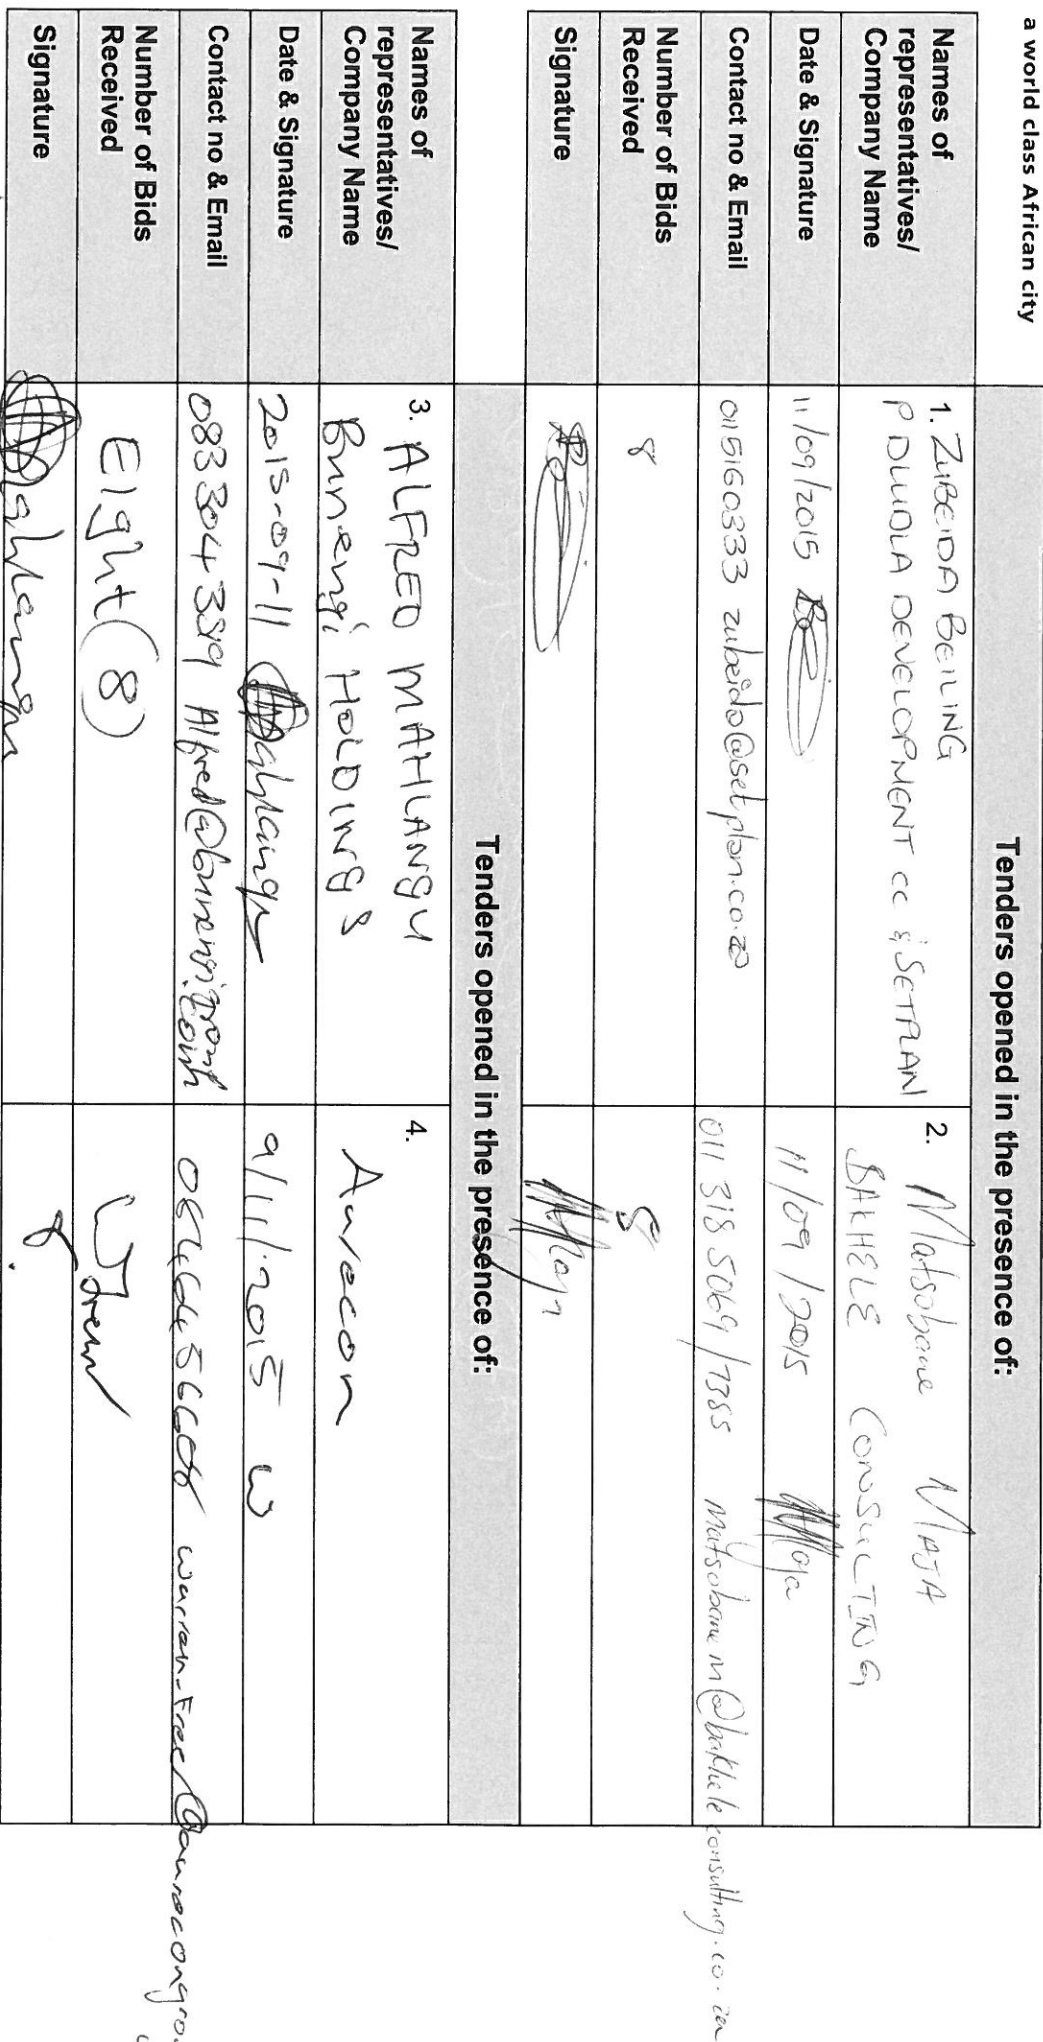 a world class African city
Tenders opened in the presence of:
Names of representatives/ Company Name
1. ZUBEIDA BEILING
P DLUDLA DEVELOPMENT CC & SETPLAN
2. Matsobane MAJA
BAKHELE CONSULTING
Date & Signature
11/09/2015
11/09/2015 Maja
Contact no & Email
0115160333 zubeida@setplan.co.za
011 318 5069/7385 matsobanem@bakheleconsulting.co.za
Number of Bids Received
8
8
Signature
Maja
Tenders opened in the presence of:
Names of representatives/ Company Name
3. ALFRED MAHLANGU
Bunengi HOLDINGS
4.
Aurecon
Date & Signature
2015-09-11 Mahlangu
9/11/2015 W
Contact no & Email
083 304 3819
warren.
Number of Bids Received
Eight (8)
Signature
Mahlangu
8.